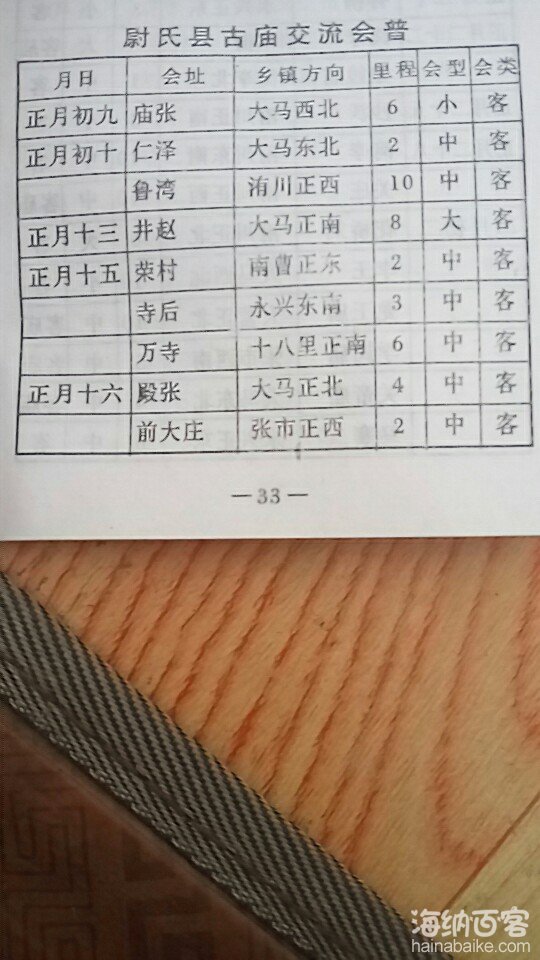 尉氏县古庙交流会普
月日 会址 乡镇方向 里程 会型 会类
正月初九 庙张 大马西北 6 小 客
正月初十 仁泽 大马东北 2 中 客
鲁湾 洧川正西 10 中 客
正月十三 井赵 大马正南 8 大 客
正月十五 荣村 南曹正东 2 中 客
寺后 永兴东南 3 中 客
万寺 十八里正南 6 中 客
正月十六 殿张 大马正北 4 中 客
前大庄 张市正西 2 中 客
—33—
海纳百客
hainabaike.com